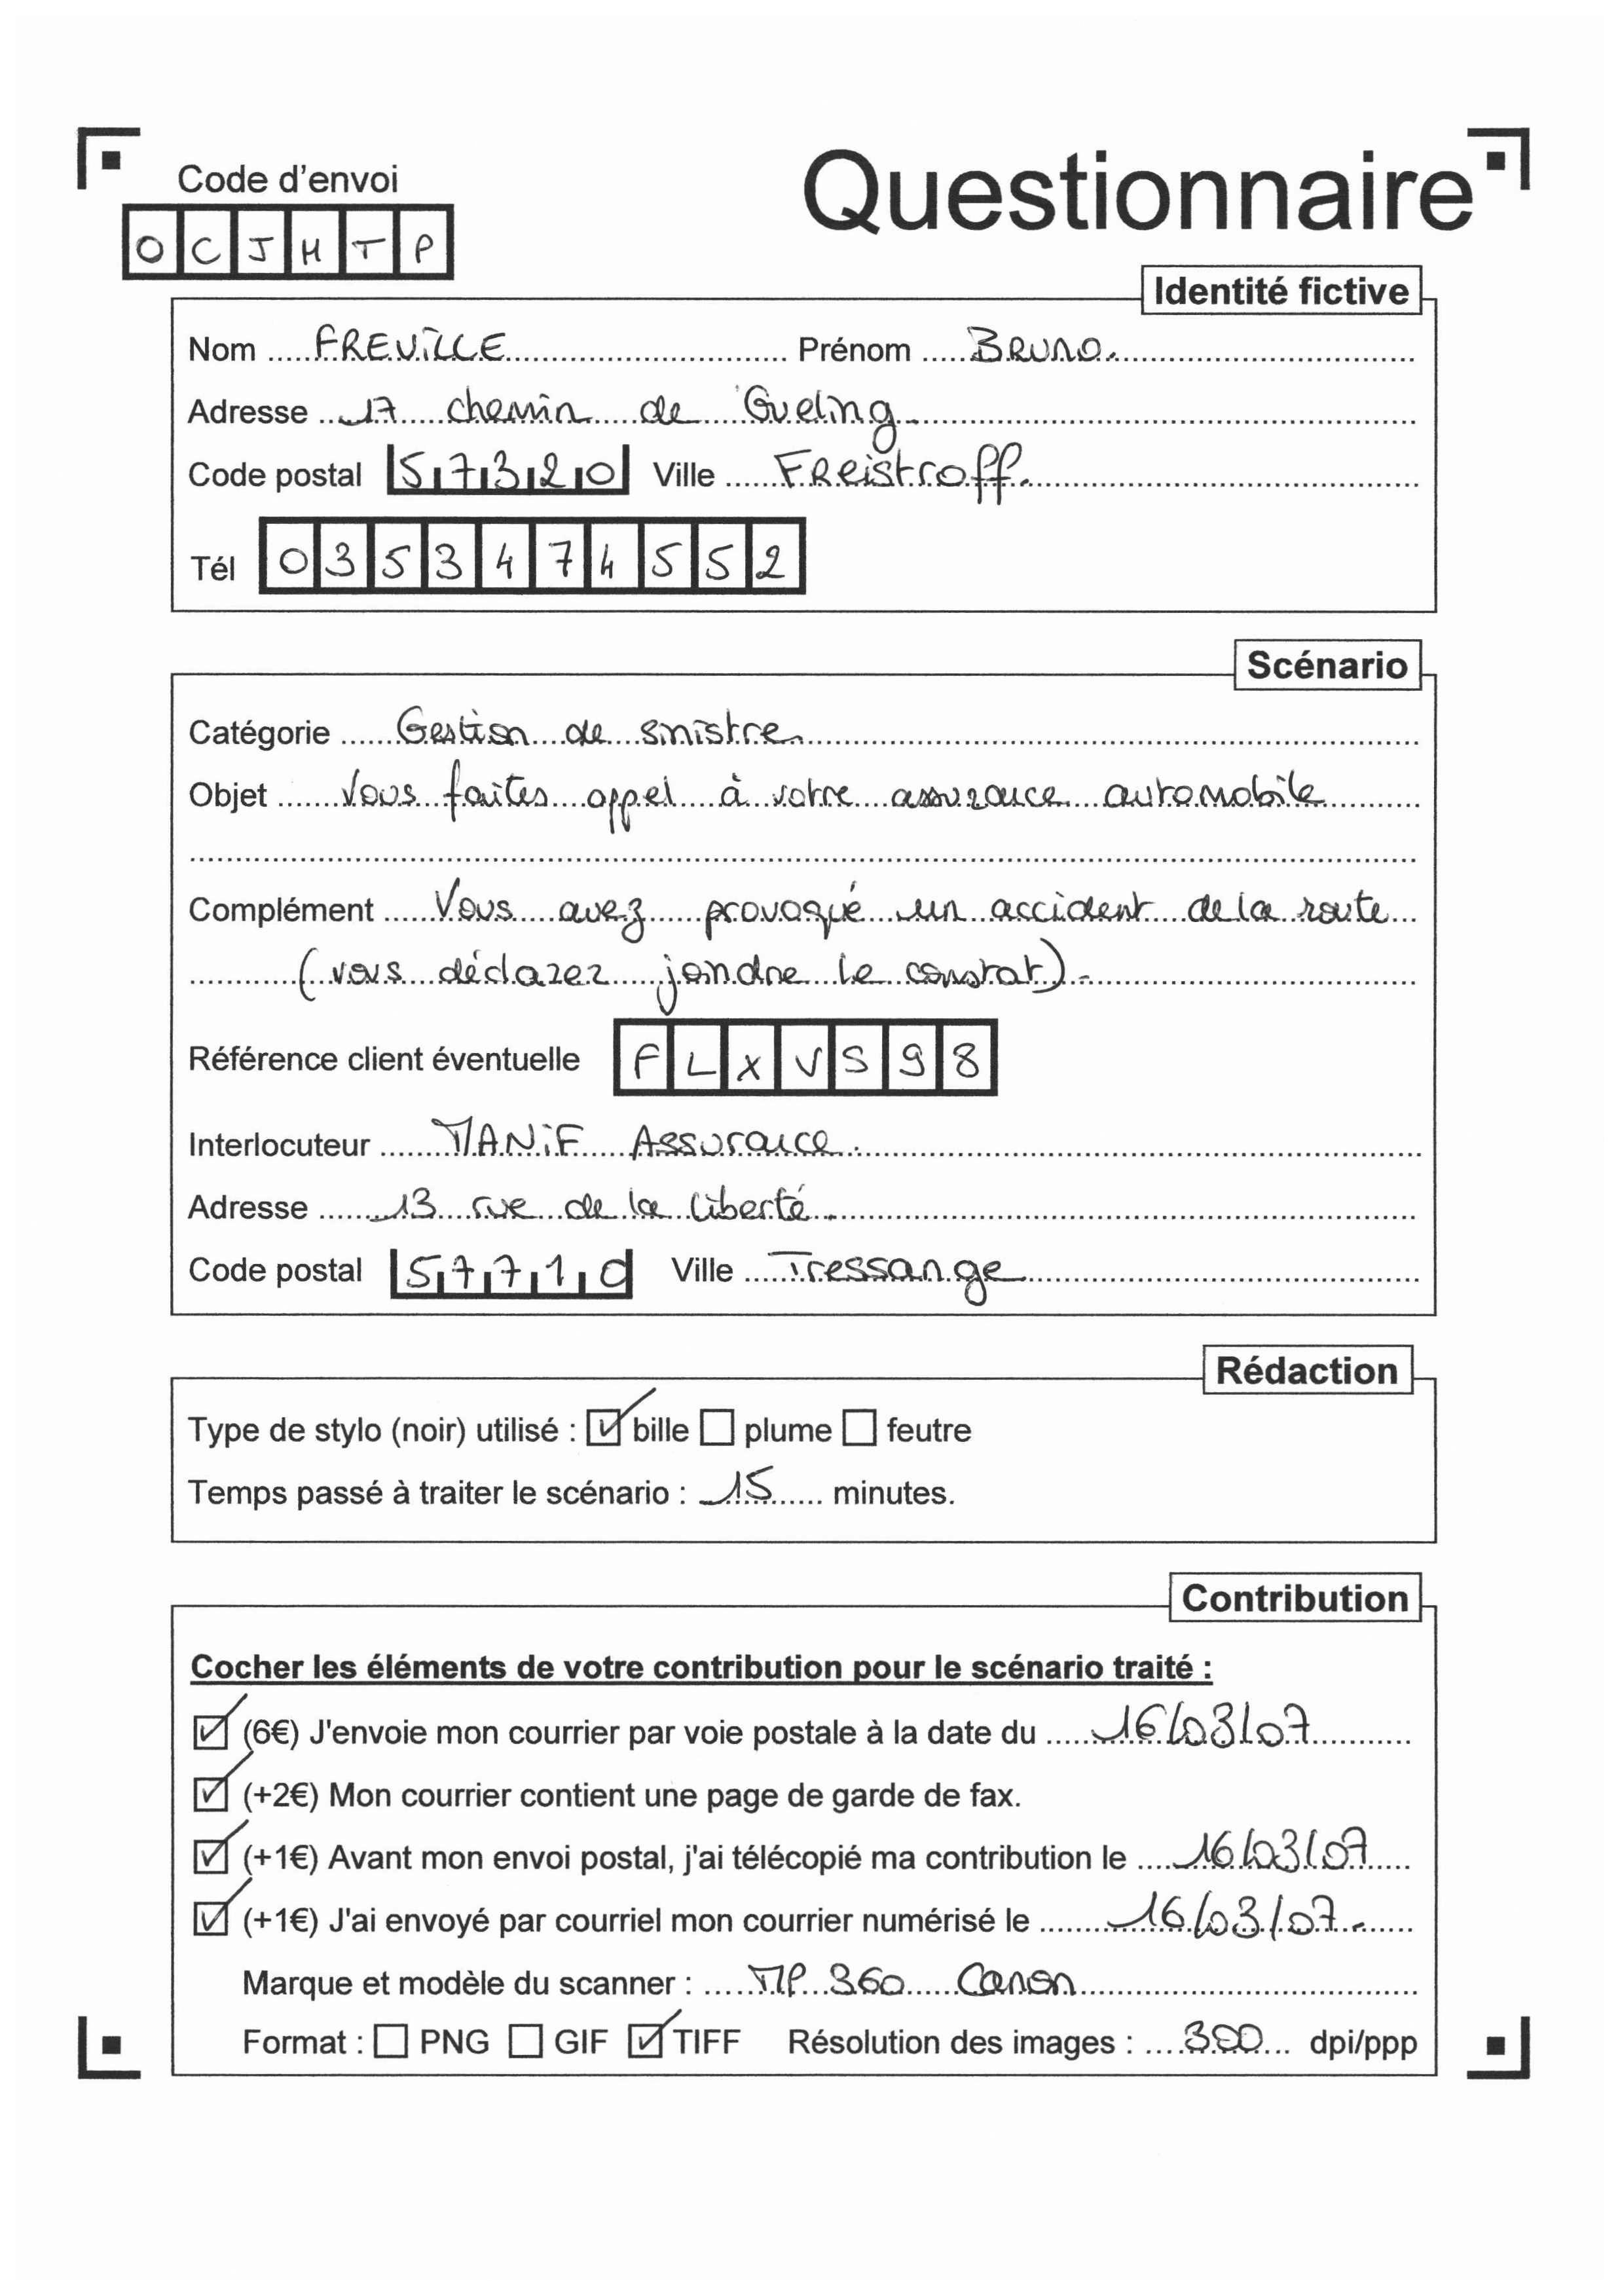 Code d'envoi
Questionnaire
OCJHTP
Identité fictive
Nom FREVILLE Prénom BRUNO.
Adresse 17 chemin de Gueling
Code postal 57320 Ville FReistroff.
Tél 0353474552
Scénario
Catégorie Gestion de sinistre
Objet Vous faites appel à votre assurance automobile
Complément Vous avez provoqué un accident de la route
(vous déclarez joindre le constat).
Référence client éventuelle FLXVS98
Interlocuteur MANiF Assurance.
Adresse 13 rue de la liberté.
Code postal 57710 Ville Tressange
Rédaction
Type de stylo (noir) utilisé : ☑ bille ☐ plume ☐ feutre
Temps passé à traiter le scénario : 15 minutes.
Contribution
Cocher les éléments de votre contribution pour le scénario traité :
☑ (6€) J'envoie mon courrier par voie postale à la date du 16/03/07
☑ (+2€) Mon courrier contient une page de garde de fax.
☑ (+1€) Avant mon envoi postal, j'ai télécopié ma contribution le 16/03/07
☑ (+1€) J'ai envoyé par courriel mon courrier numérisé le 16/03/07.
Marque et modèle du scanner : MP 360 Canon
Format : ☐ PNG ☐ GIF ☑ TIFF Résolution des images : 300 dpi/ppp